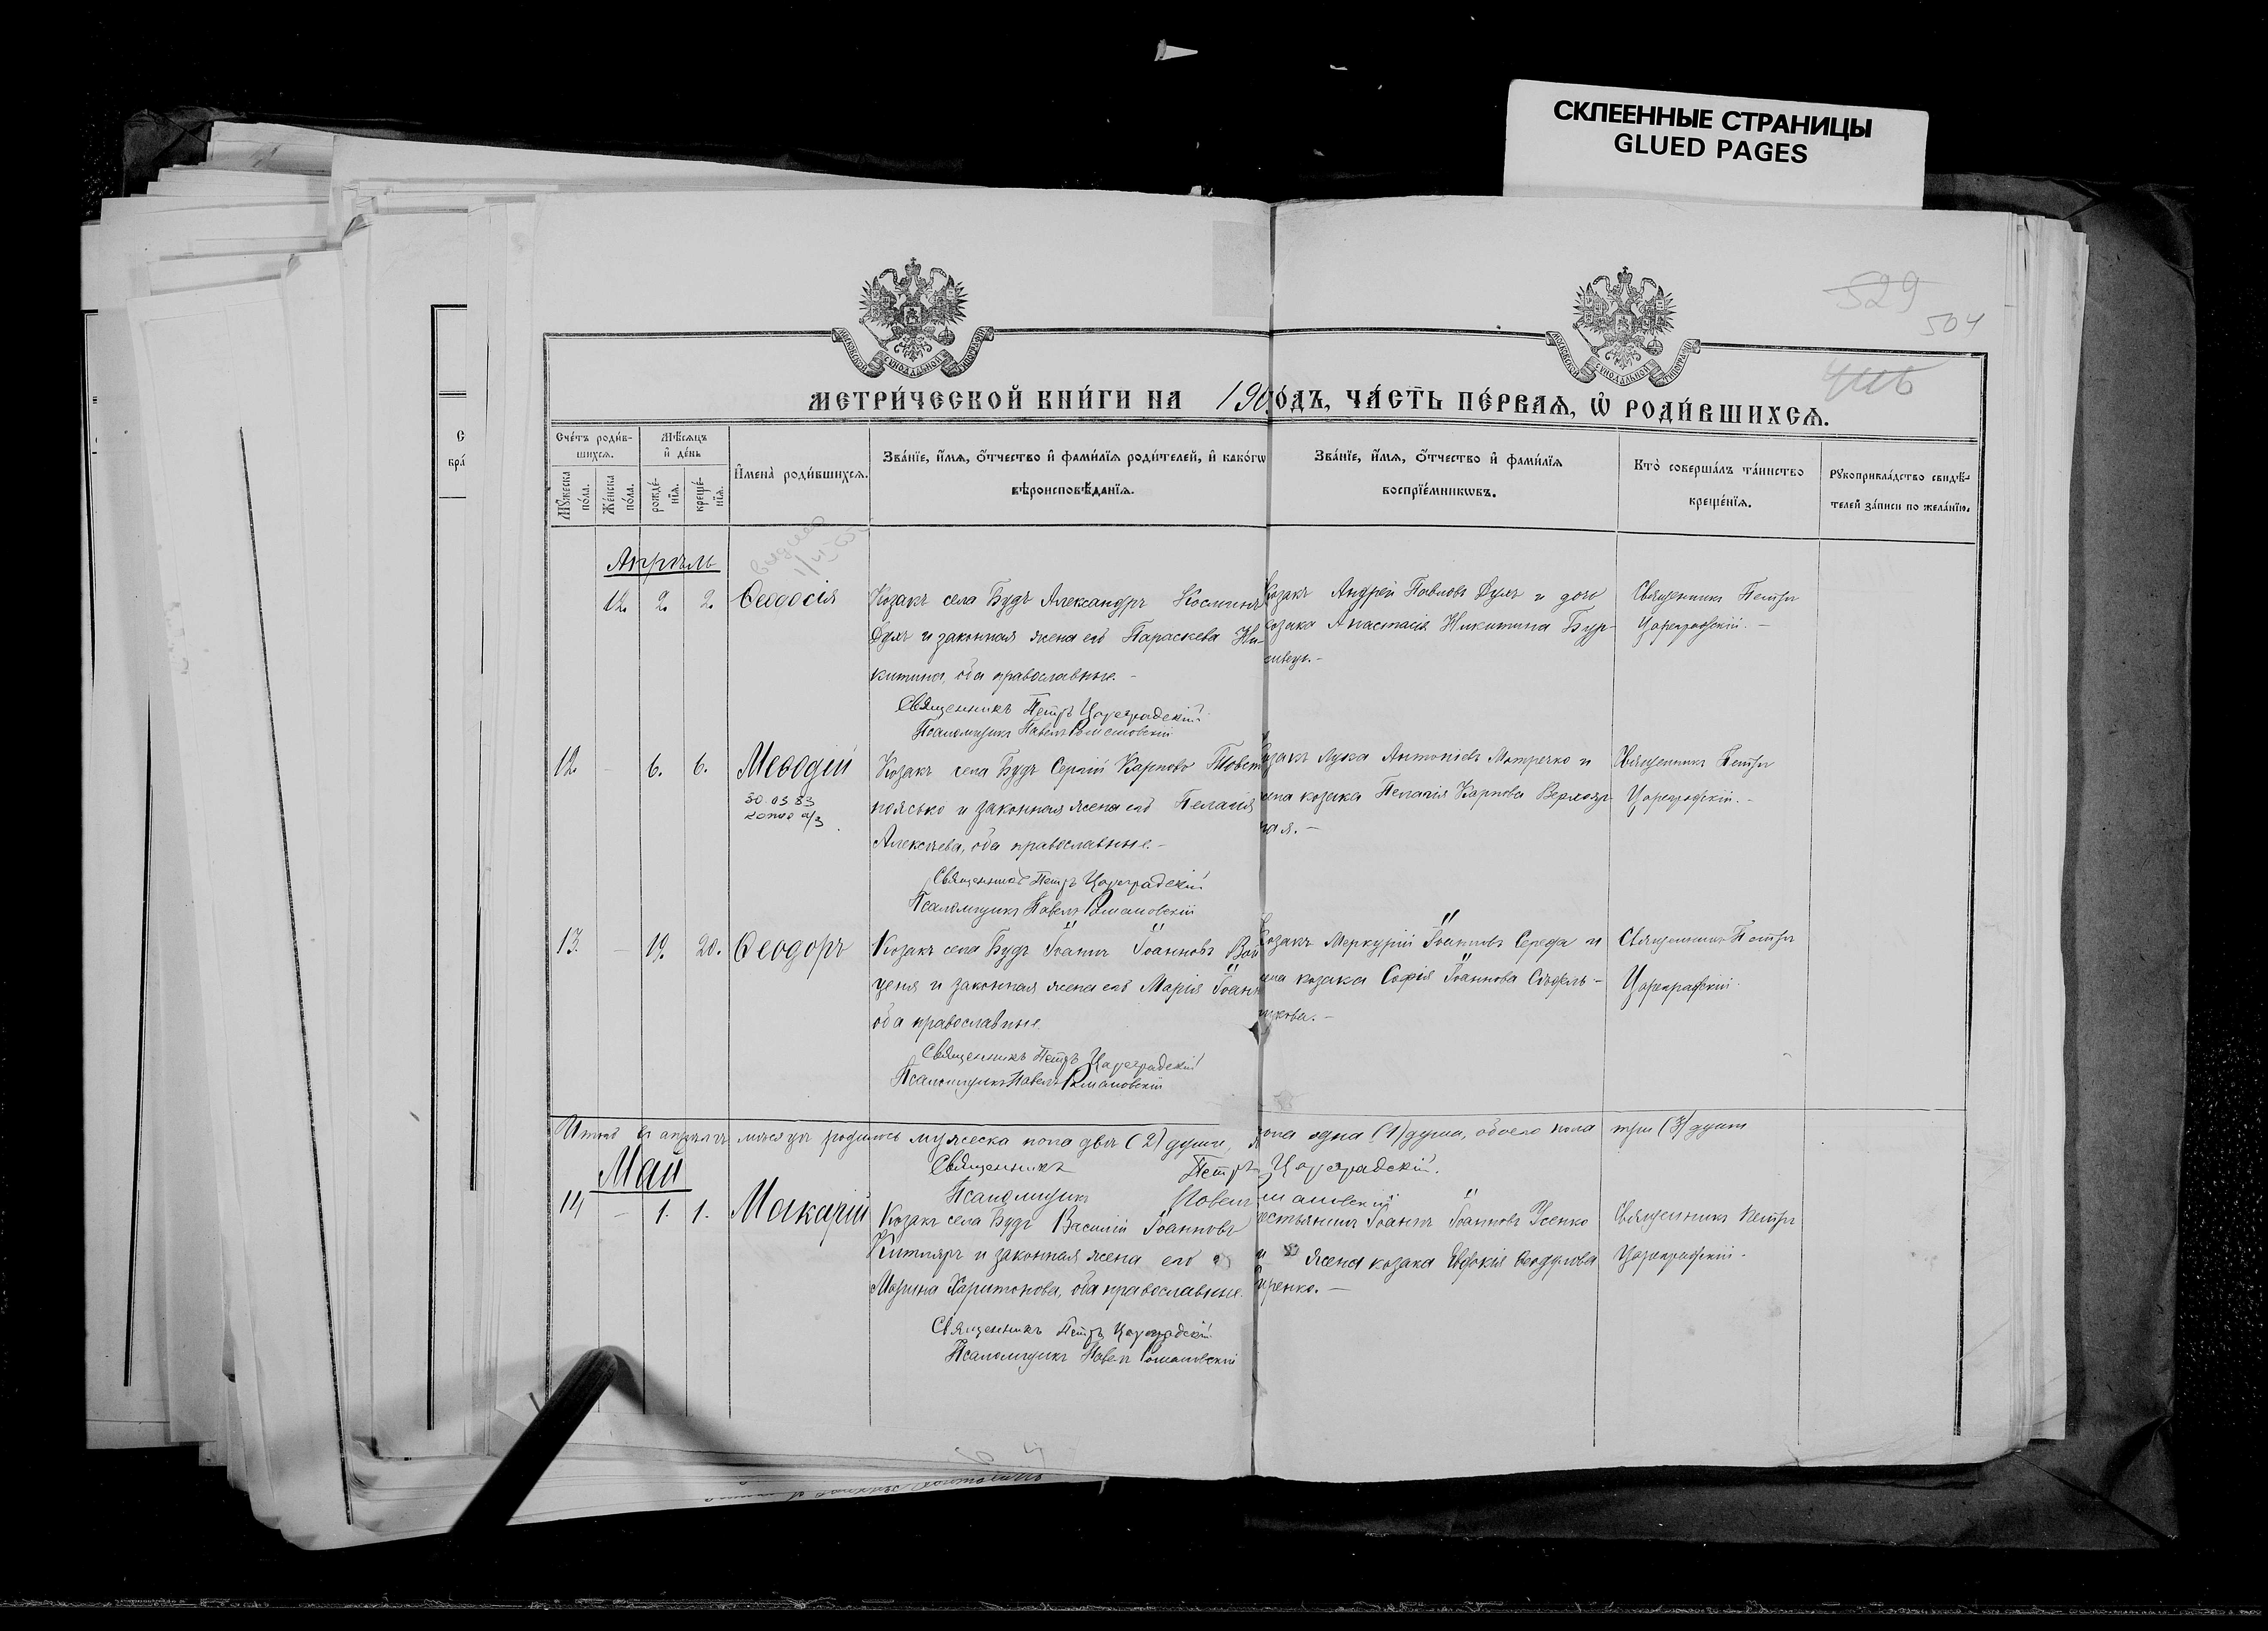 СКЛЕЕННЫЕ СТРАНИЦЫ
GLUED PAGES
529
504
МОСКОВСКОЙ СѴНОДАЛЬНОЙ ТИПОГРАФІИ
МОСКОВСКОЙ СѴНОДАЛЬНОЙ ТИПОГРАФІИ
МЕТРИ́ЧЕСКОЙ КНИ́ГИ НА 190 ГО́ДЪ, ЧА́СТЬ ПЕ́РВАЯ, Ѡ҆ РОДИ́ВШИХСЯ.
Сче́тъ роди́в-
шихся.
Мѣ́сяцъ
и҆ де́нь
Му́жеска
по́ла.
Же́нска
по́ла.
рожде́-
нїя.
креще́-
нїя.
И҆мена̀ роди́вшихся.
Зва́нїе, и҆́мя, о҆́тчество и҆ фами́лїя роди́телей, и҆ како́гѡ
вѣроисповѣ́данїя.
Зва́нїе, и҆́мя, о҆́тчество и҆ фами́лїя
воспрїе́мникѡвъ.
Кто̀ соверша́лъ та́инство
креще́нїя.
Рукоприкла́дство свидѣ́-
телей за́писи по жела́нїю.
Апрѣль
12. 2. 2. Ѳеодосія
Козакъ села Будъ Александръ Косминъ
Дуля и законная жена его Параскева Ни-
китина, оба православные. -
Священникъ Петръ Цареградскій
Псаломщикъ Павелъ Романовскій
Козакъ Андрей Павловъ Дуля и дочь
козака Анастасія Никитина Бур-
Священникъ Петръ
Цареградскій. -
12. - 6. 6. Меѳодій
30 03 83
копия а/з
Козакъ села Будъ Сергій Карповъ Товсто-
поясько и законная жена его Пелагія
Алексѣева, оба православные. -
Священникъ Петръ Цареградскій
Псаломщикъ Павелъ Романовскій
козакъ Лука Антоніевъ Матречко и
жена козака Пелагія Карпова
ная. -
Священникъ Петръ
Цареградскій. -
13. - 19. 20. Ѳеодоръ
Козакъ села Будъ Іоаннъ Іоанновъ Вой-
ценя и законная жена его Марія Іоанн
оба православные.
Священникъ Петръ Цареградскій
Псаломщикъ Павелъ Романовскій
Козакъ Меркурій Іоанновъ Середа и
жена козака Софія Іоаннова Сѣдель-
никова. -
Священникъ Петръ
Цареградскій.
Итого въ апрѣлѣ мѣсяцѣ родилось мужеска пола двѣ (2) души, пола одна (1) душа, обоего пола три (3) души
Священникъ Петръ Цареградскій.
Псаломщикъ Павелъ Романовскій
Май
14 - 1. 1. Макарій
Козакъ села Будъ Василій Іоанновъ
Китляръ и законная жена его
Марина Харитонова, оба православные.
Священникъ Петръ Цареградскій
Псаломщикъ Павелъ Романовскій
крестьянинъ Іоаннъ Іоанновъ Усенко
и жена козака Евдокія Ѳеодулова
Священникъ Петръ
Цареградскій.